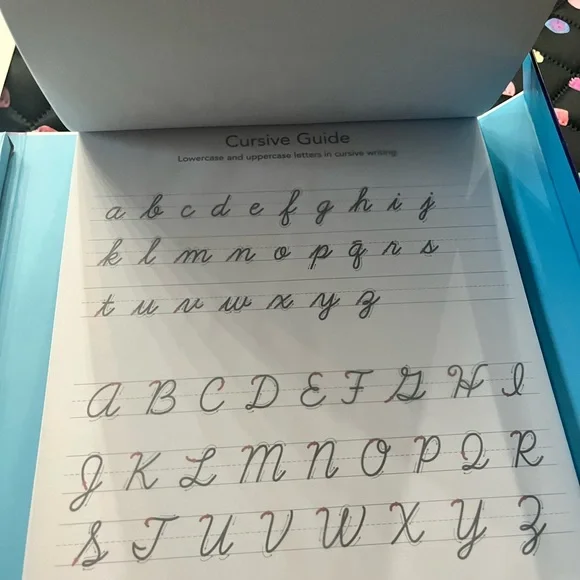 Cursive Guide
Lowercase and uppercase letters in cursive writing.
a b c d e f g h i j
k l m n o p q r s
t u v w x y z
A B C D E F G H I
J K L M N O P Q R
S T U V W X Y Z